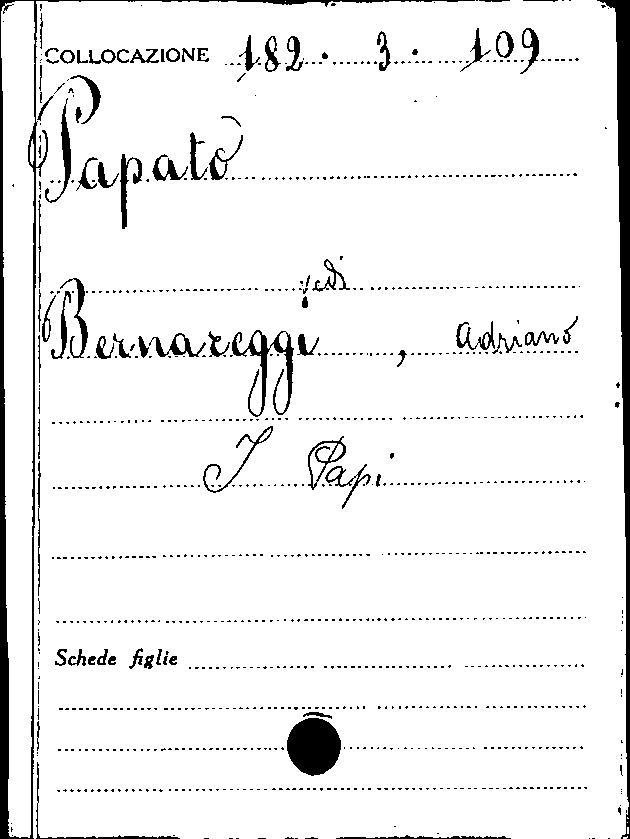 COLLOCAZIONE 182 · 3 · 109
Papato
vedi
Bernareggi, Adriano
I Papi
Schede figlie